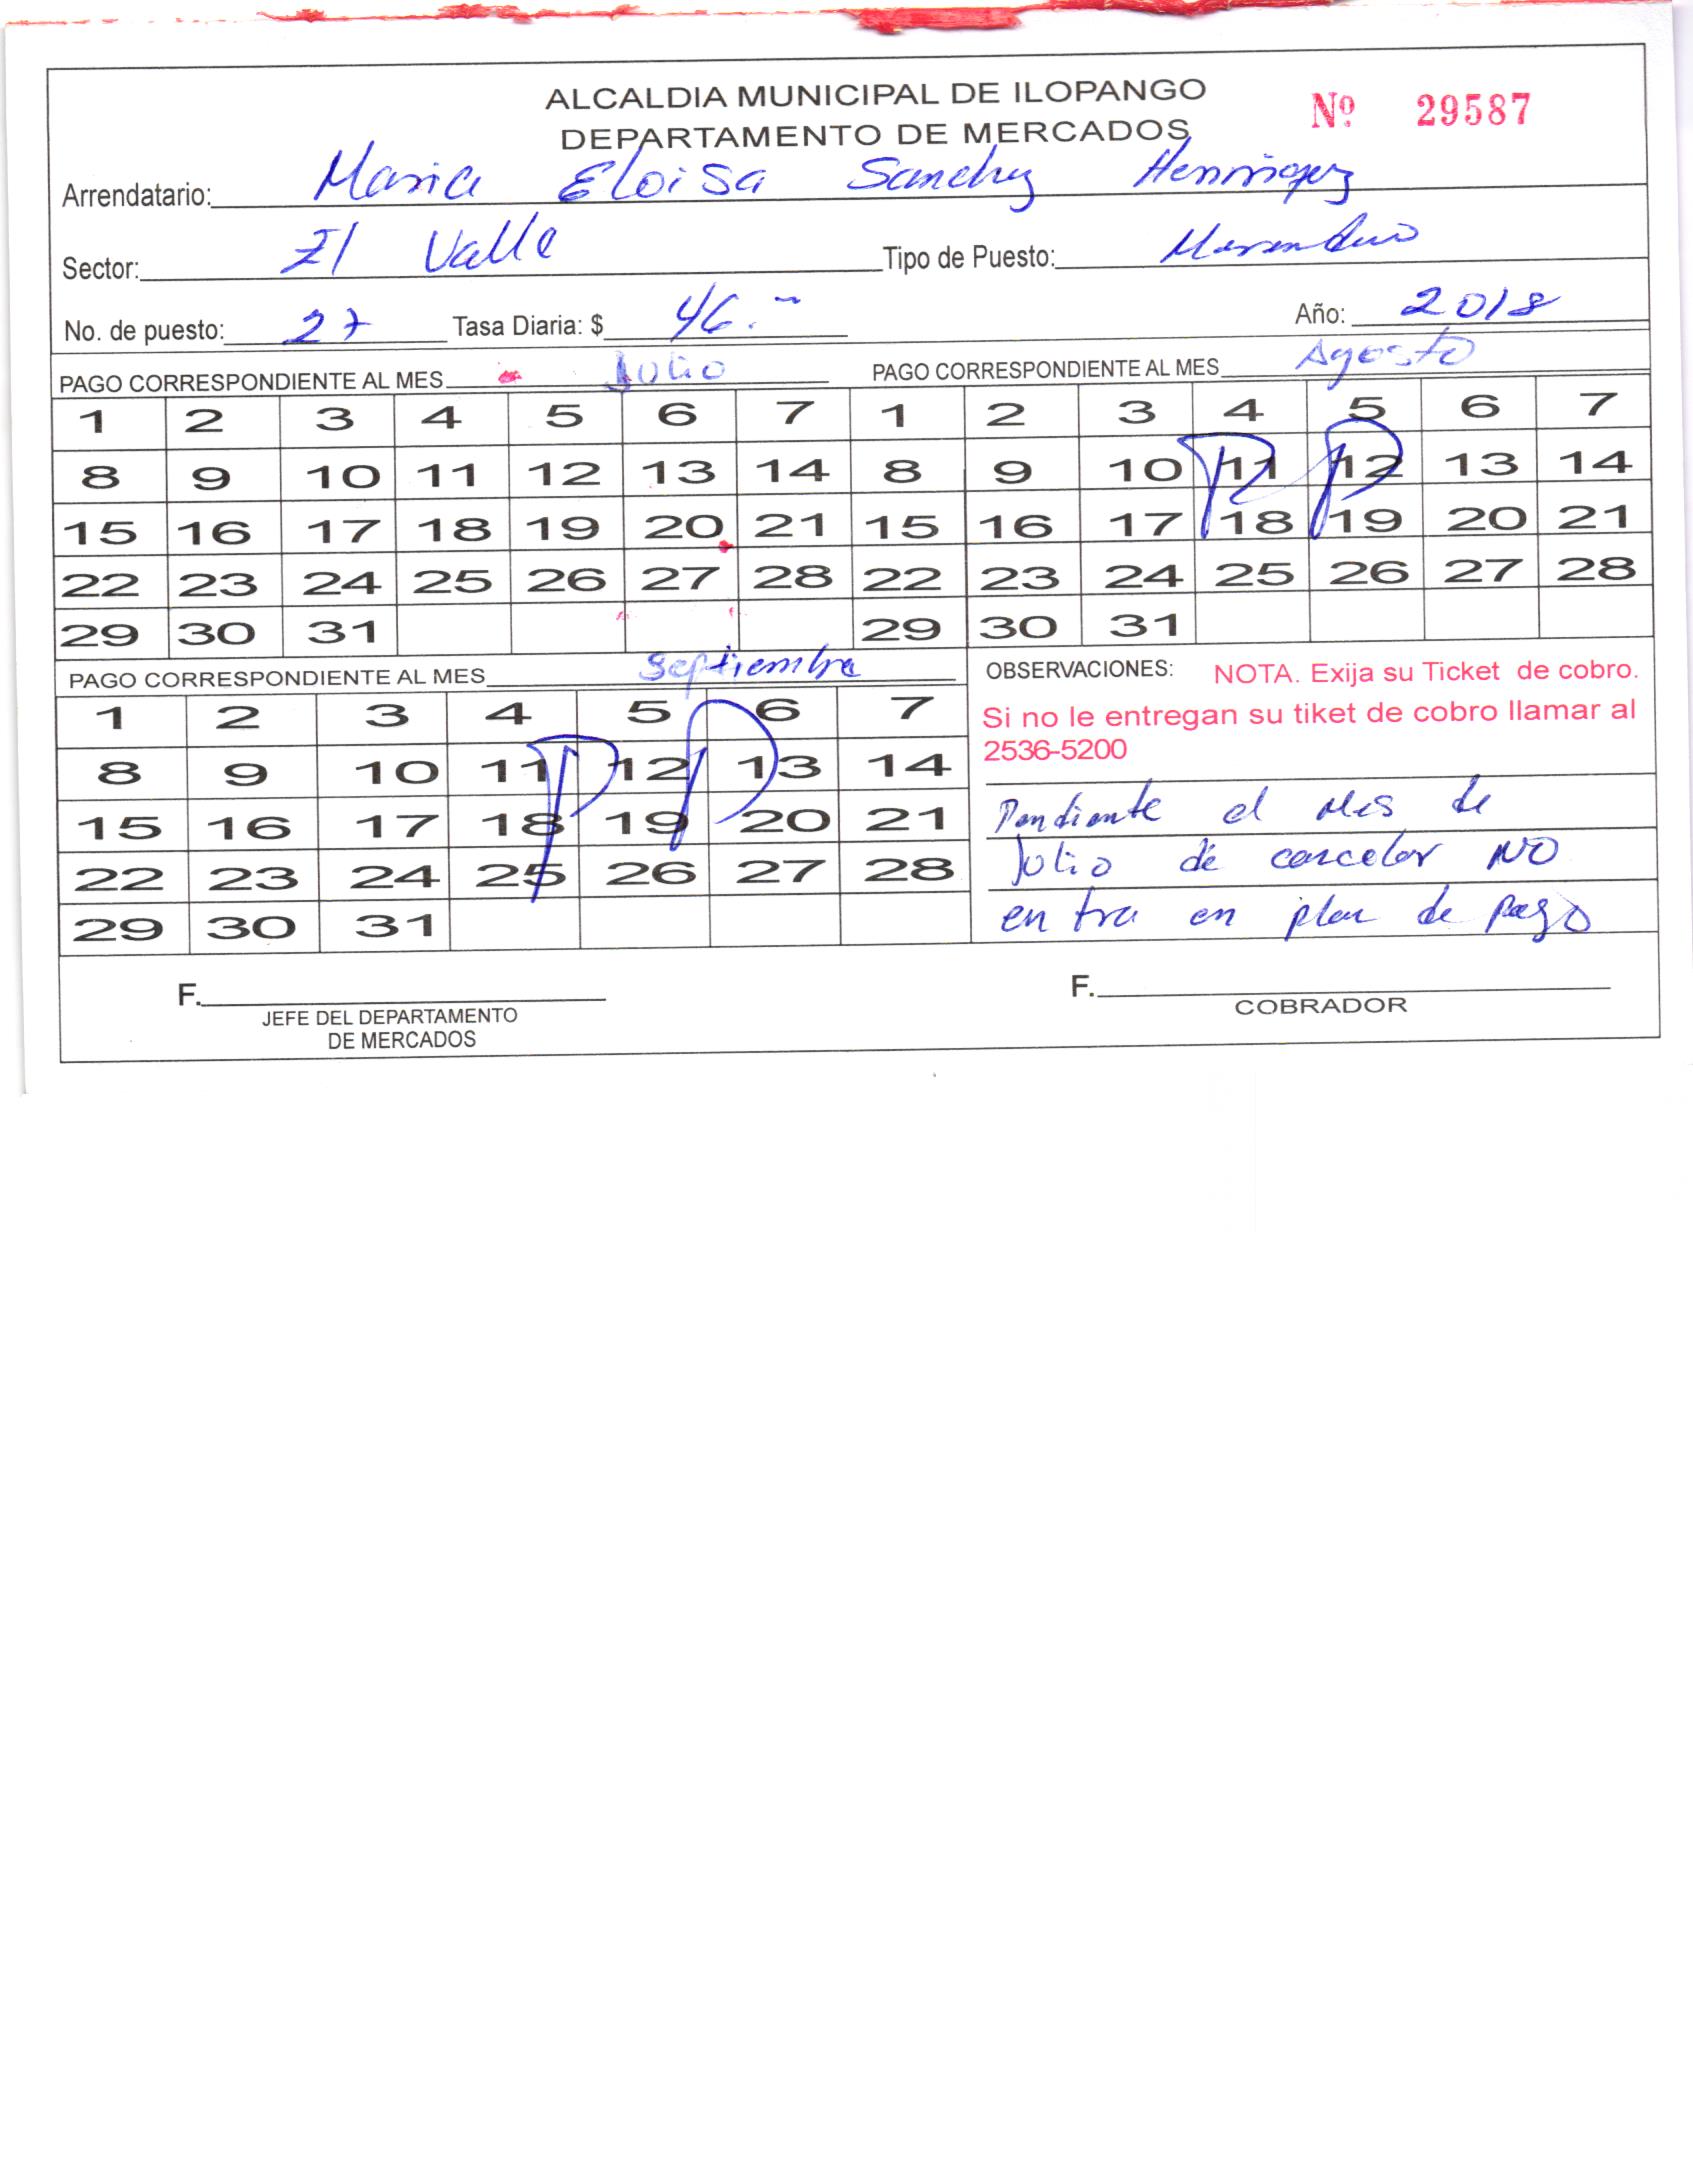 ALCALDIA MUNICIPAL DE ILOPANGO
DEPARTAMENTO DE MERCADOS
Nº 29587
Arrendatario: Maria Eloisa Sanchez Henriquez
Sector: El Valle Tipo de Puesto:
No. de puesto: 27 Tasa Diaria: $ 46.- Año: 2018
PAGO CORRESPONDIENTE AL MES Julio PAGO CORRESPONDIENTE AL MES Agosto
1 2 3 4 5 6 7 1 2 3 4 5 6 7
8 9 10 11 12 13 14 8 9 10 11 12 13 14
15 16 17 18 19 20 21 15 16 17 18 19 20 21
22 23 24 25 26 27 28 22 23 24 25 26 27 28
29 30 31 29 30 31
PP
PAGO CORRESPONDIENTE AL MES Septiembre
1 2 3 4 5 6 7
8 9 10 11 12 13 14
15 16 17 18 19 20 21
22 23 24 25 26 27 28
29 30 31
PP
OBSERVACIONES: NOTA. Exija su Ticket de cobro.
Si no le entregan su tiket de cobro llamar al
2536-5200
Pendiente el Mes de
Julio de cancelar NO
entra en plan de pago
F.
JEFE DEL DEPARTAMENTO
DE MERCADOS
F.
COBRADOR